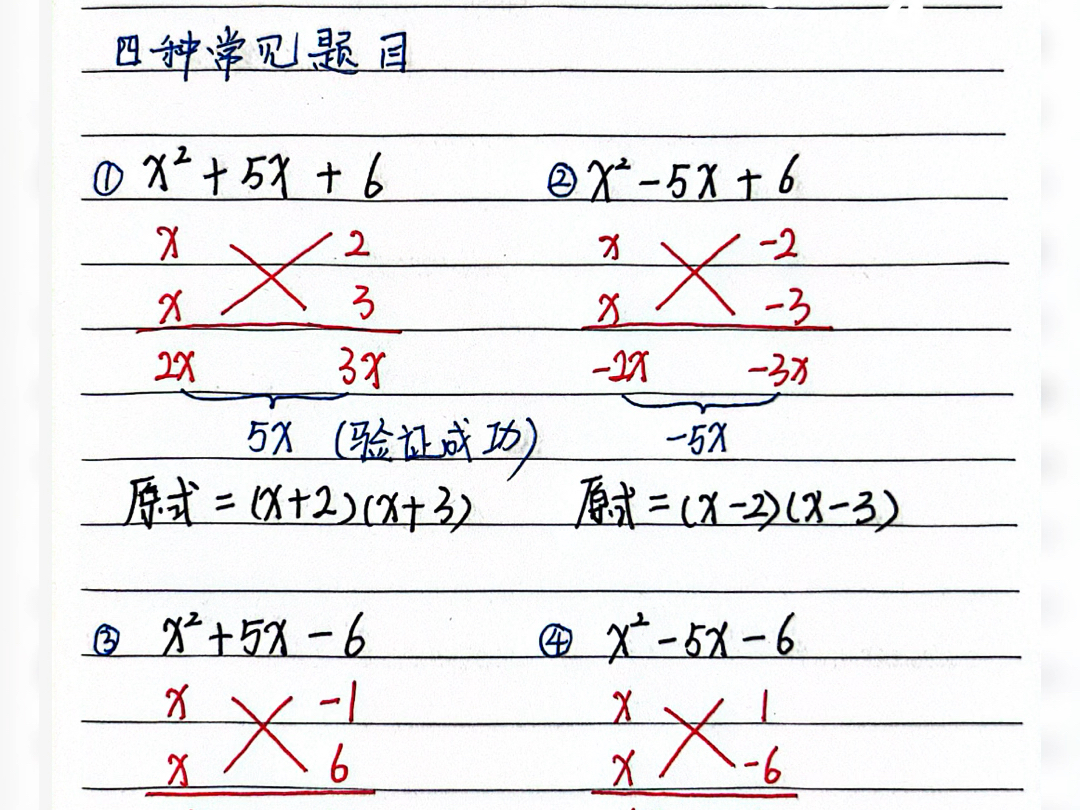 四种常见题目
① x²+5x+6 ② x²-5x+6
x 2 x -2
x 3 x -3
2x 3x -2x -3x
5x (验证成功) -5x
原式=(x+2)(x+3) 原式=(x-2)(x-3)
③ x²+5x-6 ④ x²-5x-6
x -1 x 1
x 6 x -6